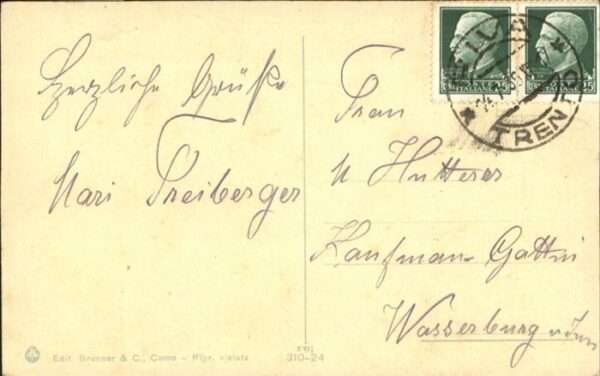 Herzliche Grüße
Mari Freiberger
Frau
Hutterer
Kaufmann-Gattin
Wasserburg a/Inn
TRENTO
ITALIANE
25
Edit. Brunner & C., Como - Ripr. vietata
310-24